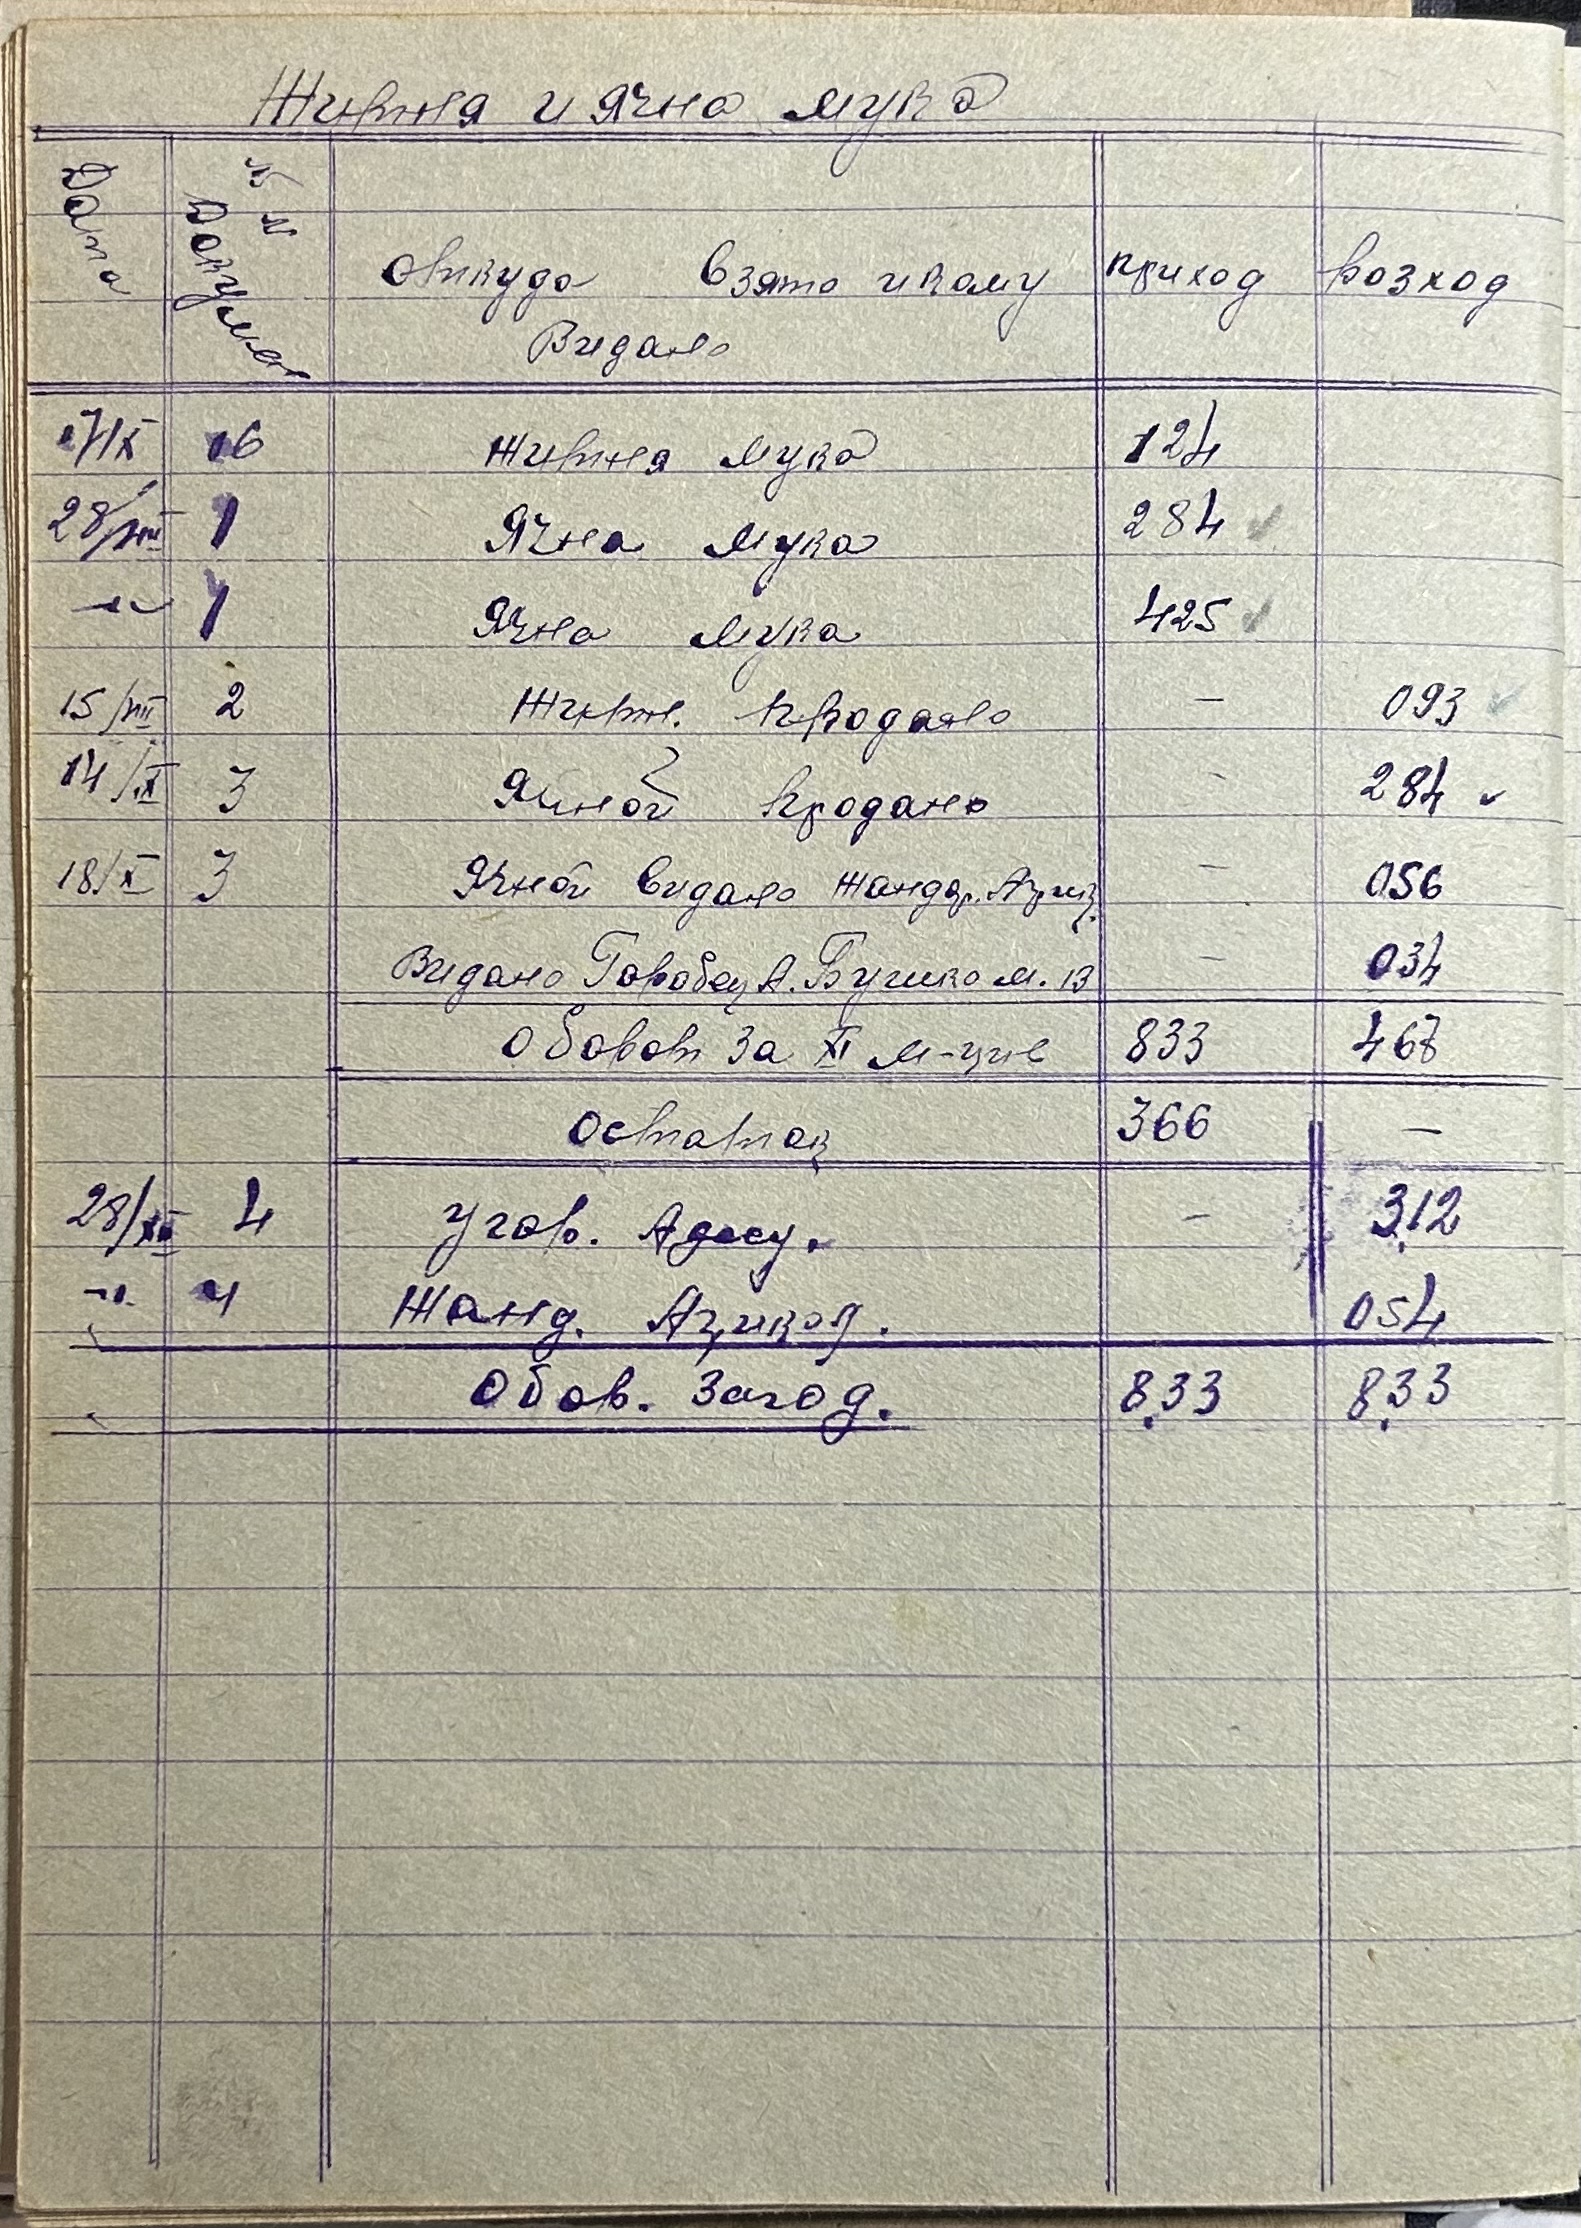 Житня и Ячна мука
Дата №№ Докумен Откуда взято и кому приход розход
Видано
17/X 16 Житня мука 124
28/VIII 1 Ячна мука 284
-"- 1 Ячна мука 425
15/VIII 2 Житн. продано - 093
14/IX 3 Ячной продано - 284
18/X 3 Ячной видано Жандар. Ациц. - 056
Видано Горобец А. Бушко м. В - 034
Оборот За XI м-цив 833 467
Остаток 366 -
28/XII 4 Угов. - 3.12
-"- 4 Жанд. - 054
Обор. За год. 8.33 8.33